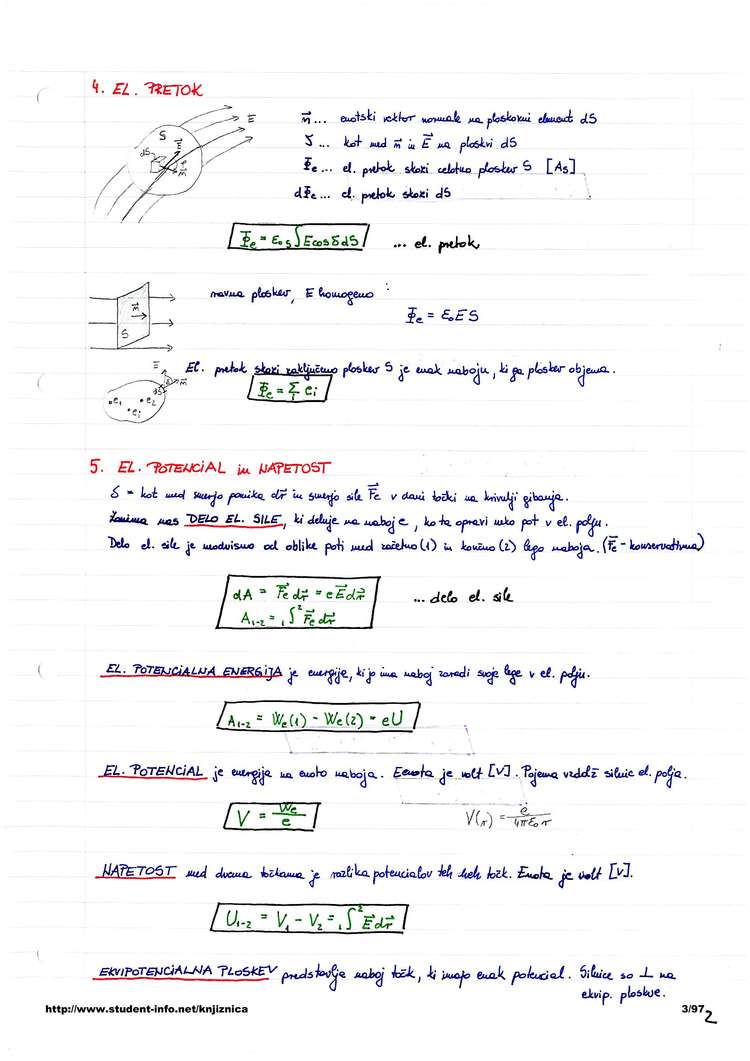 4. EL. PRETOK
n⃗ ... enotski vektor normale na ploskovni element dS
δ ... kot med n⃗ in E⃗ na ploskvi dS
Φe ... el. pretok skozi celotno ploskev S [As]
dΦe ... el. pretok skozi dS
S
dS
E⃗
n⃗
E⃗
Φe = ε₀ s∫ E cos δ dS ... el. pretok
ravna ploskev, E homogeno :
Φe = ε₀ E S
n⃗
S
El. pretok skozi zaključeno ploskev S je enak naboju, ki ga ploskev objema.
Φe = Σi ei
E⃗
n⃗
dS
e₁ e₂
ei
5. EL. POTENCIAL in NAPETOST
δ = kot med smerjo pomika dr⃗ in smerjo sile F⃗e v dani točki na krivulji gibanja.
Zanima nas DELO EL. SILE, ki deluje na naboj e, ko ta opravi neko pot v el. polju.
Delo el. sile je neodvisno od oblike poti med začetno (1) in končno (2) lego naboja. (F⃗e - konservativna)
dA = F⃗e dr⃗ = e E⃗ dr⃗ ... delo el. sile
A₁₋₂ = ₁∫² F⃗e dr⃗
EL. POTENCIALNA ENERGIJA je energije, ki jo ima naboj zaradi svoje lege v el. polju.
A₁₋₂ = We(1) - We(2) = eU
EL. POTENCIAL je energija na enoto naboja. Eenota je volt [V]. Pojema vzdolž silnic el. polja.
V = We/e
V(r) = e/4πε₀r
NAPETOST med dvema točkama je razlika potencialov teh dveh točk. Enota je volt [V].
U₁₋₂ = V₁ - V₂ = ₁∫² E⃗ dr⃗
EKVIPOTENCIALNA PLOSKEV predstavlja naboj točk, ki imajo enak potencial. Silnice so ⊥ na
ekvip. ploskve.
http://www.student-info.net/knjiznica
3/97
2